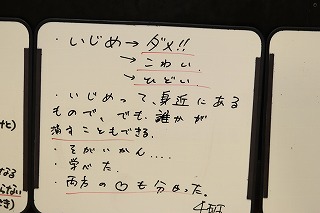 ・いじめ→ダメ!!
→こわい
→ひどい
・いじめって、身近にある
もので、でも誰かが
消すこともできる.
・そがいかん....
・学べた.
・両方の心も分かった.
4班
ヒ)
なる
らない
き)